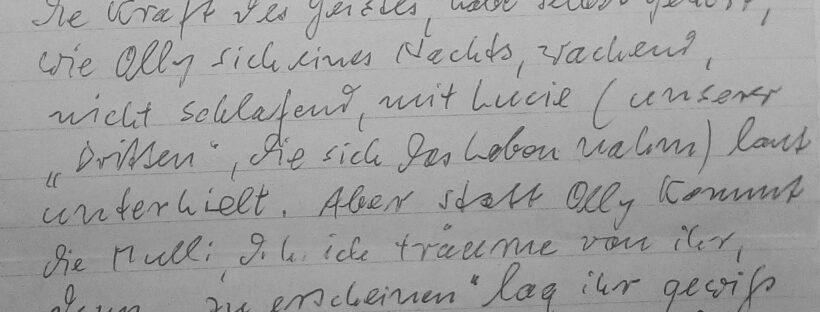 die Kraft des Geistes, habe selbst gehört,
wie Olly sich eines Nachts, wachend,
nicht schlafend, mit Lucie (unserer
„Dritten", die sich das Leben nahm) laut
unterhielt. Aber statt Olly kommt
die Mulli, d.h. ich träume von ihr,
denn „zu erscheinen" lag ihr gewiß